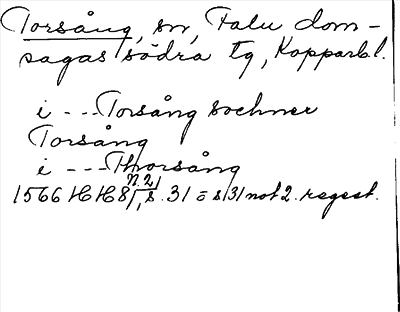 Torsång, sn, Falu dom-
sagas södra tg, Kopparb.l.
i --- Torsång sochner
Torsång
i --- Thorsång
n. 21
1566 HH 81, s. 31 = s 31 not 2. regest.